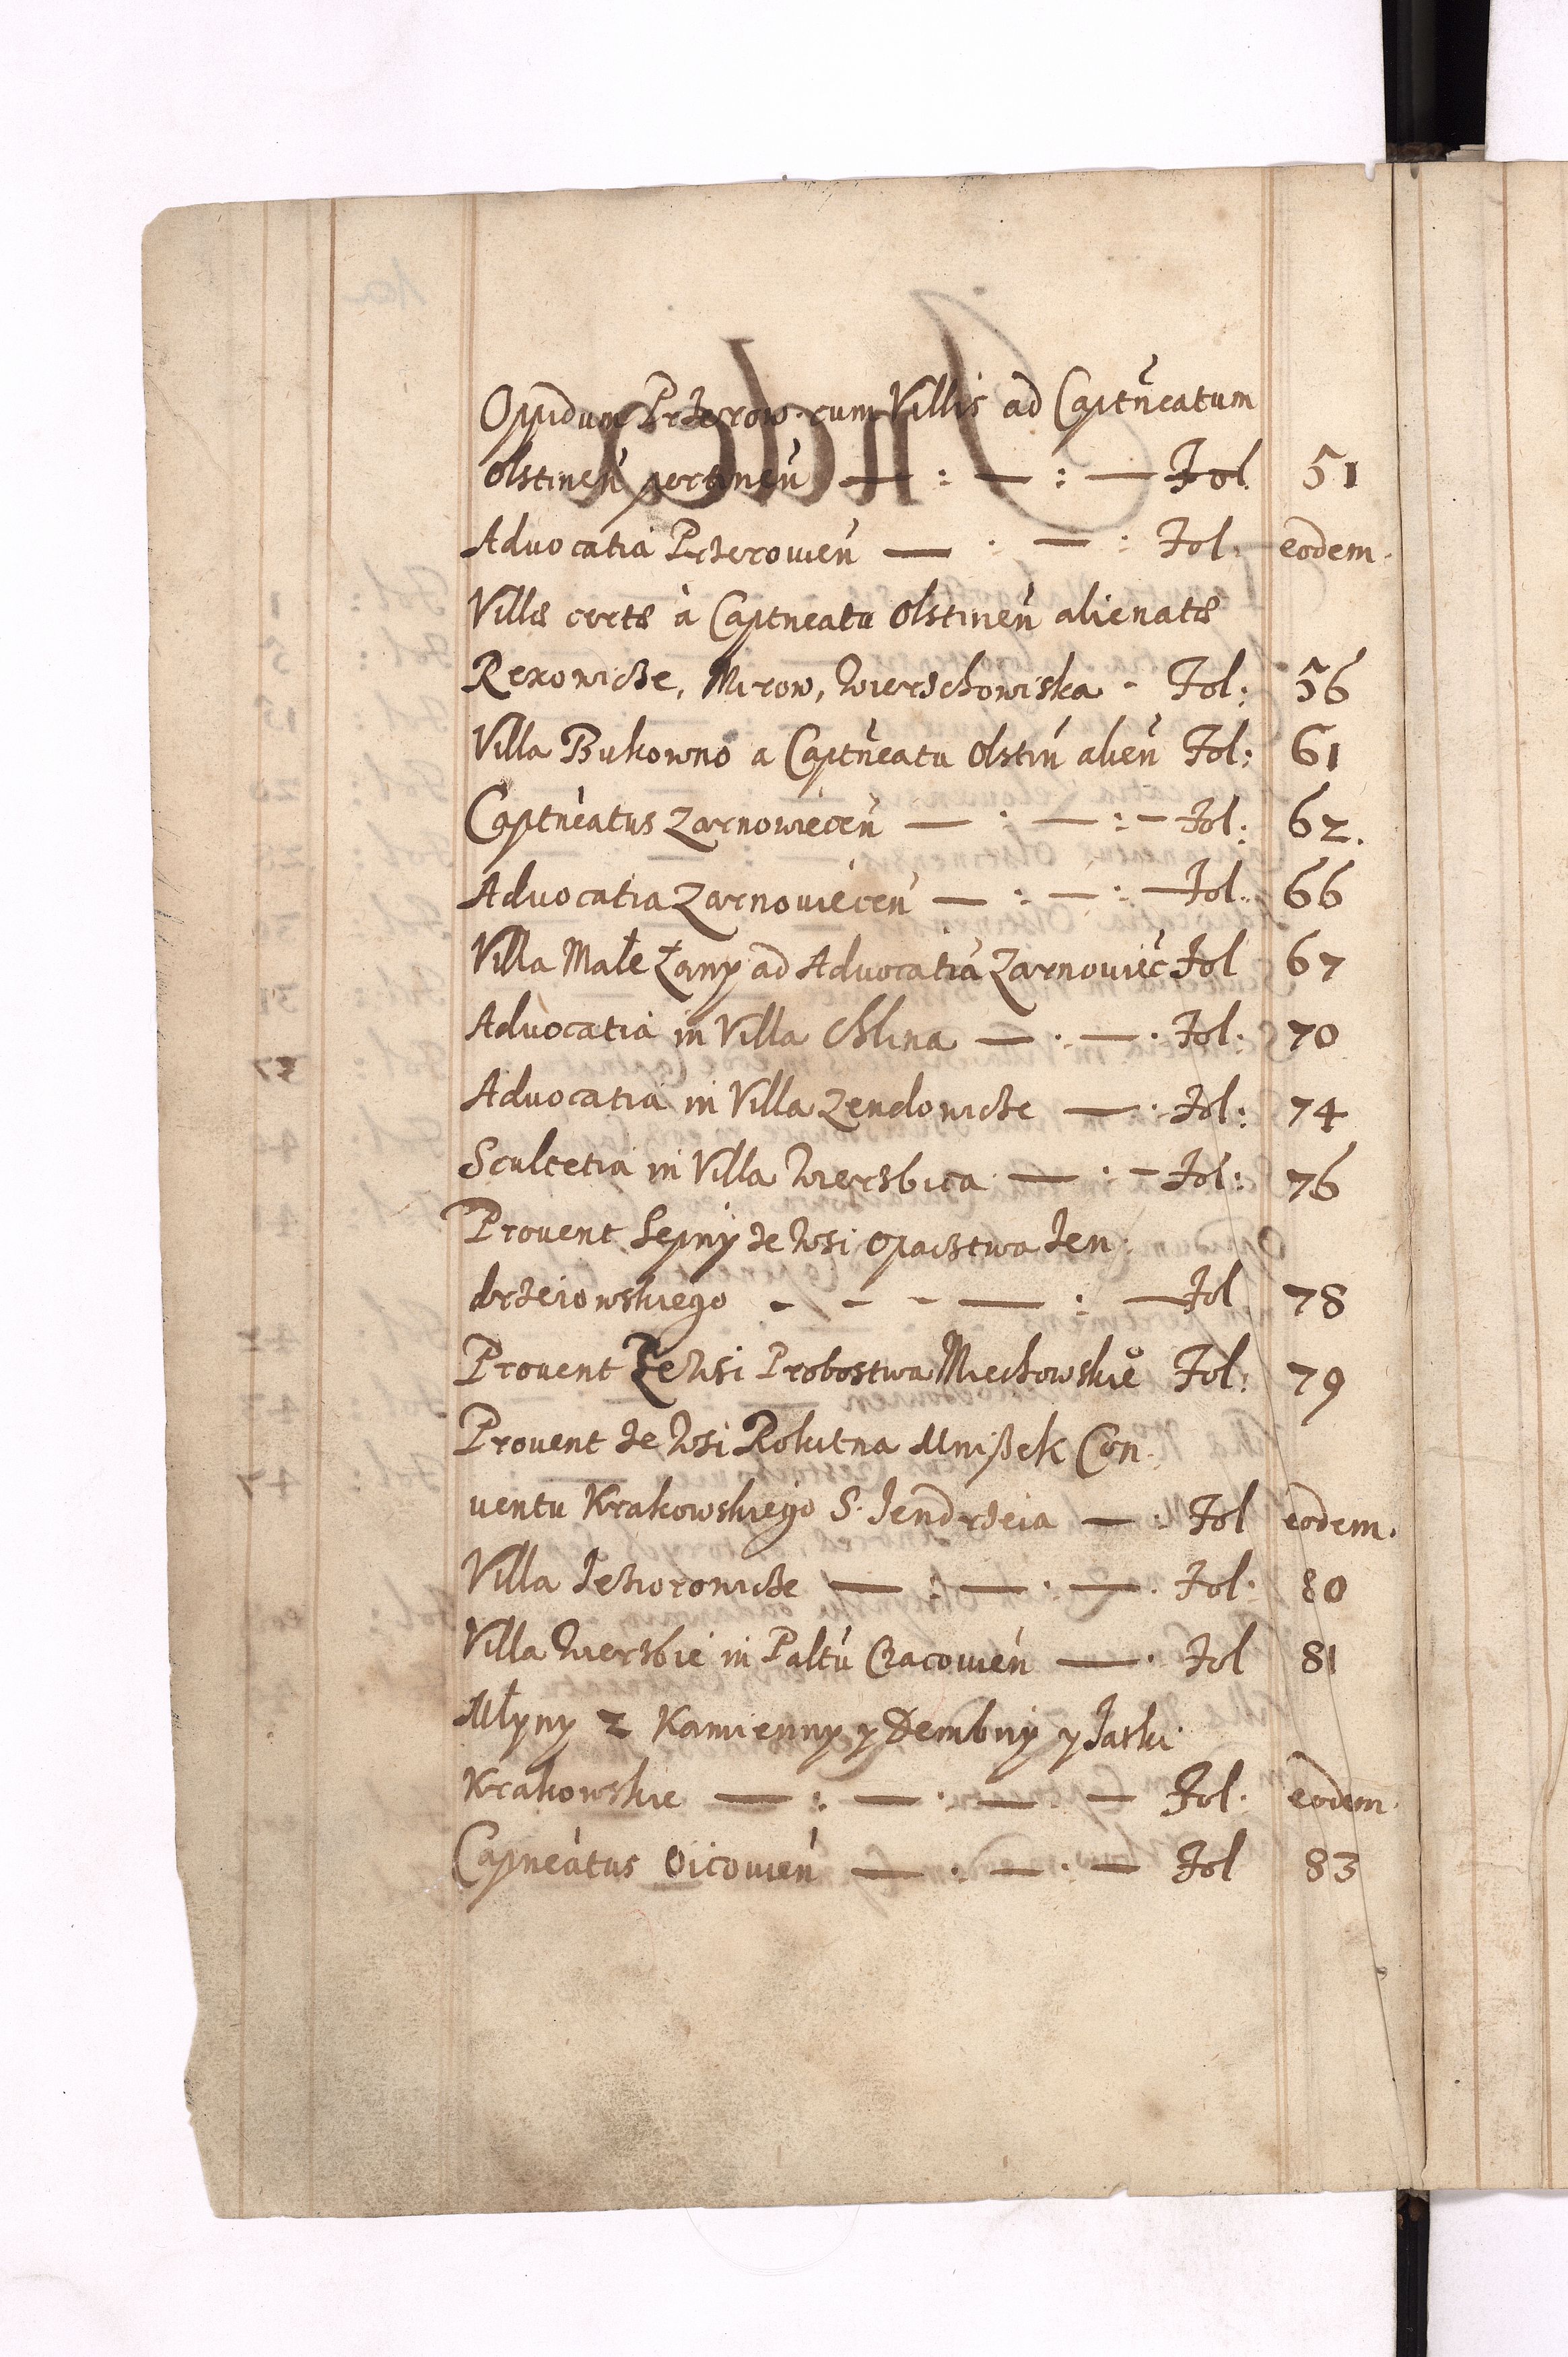 Oppidum Przerow cum Villis ad Captneatum
Olstinen pertinen — : — : — Fol. 51
Advocatia Przerovien — : — : Fol. eodem.
Villæ certæ à Captneatu Olstinen alienatæ
Rexowicze, Mirow, Wierzchowiska - Fol: 56
Villa Bukowno a Captneatu Olstin alien Fol: 61
Captneatus Zarnoviecen — : — : — Fol: 62.
Advocatia Zarnoviecen — : — : — Fol. 66
Villa Małe Łany ad Advocatia Zarnoviec Fol 67
Advocatia in Villa Chlina — . — . Fol: 70
Advocatia in Villa Zendowicze — . Fol: 74
Scultetia in Villa Wierzbica — : — Fol: 76
Provent Sepny ze Wsi Opactwa Jen
drzeiowskiego - - - — : — Fol 78
Provent Ze Wsi Probostwa Miechowskieo Fol: 79
Provent ze Wsi Rokitna Mnißek Con.
ventu Krakowskiego S. Jendrzeia — : Fol eodem.
Villa Jeziorowicze — : — . — . Fol. 80
Villa Wierzbie in Paltu Cracovien — . Fol 81
Młyny z Kamienny y Dembny y Jatki
Krakowskie — : — . — . — Fol. eodem
Capneatus Oicovien — . — . — Fol 83